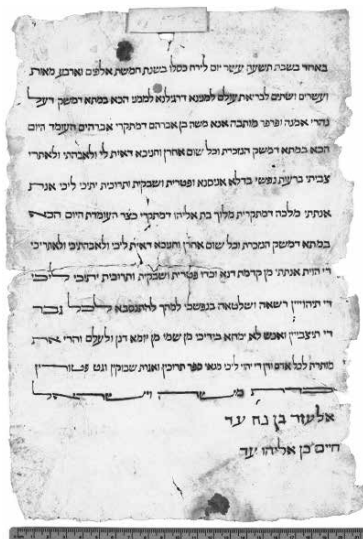 באחד בשבת תשעה עשר יום לירח כסלו בשנת חמשת אלפים וארבע מאות
ועשרים ושתים לבריאת עולם למנינא דרגילנא לממני הכא במתא דמשק דעל
נהרי אמנה ופרפר מותבה אנא משה בן אברהם דמתקרי אברהים העומד היום
הכא במתא דמשק הנזכרת וכל שום אחרן וחניכא דאית לי ולאבהתי ולאתרי
צביתי ברעות נפשי בדלא אניסנא ופטרית ושבקית ותרוכית יתיכי ליכי אנת
אנתתי מלכה דמתקרית מלוך בת אליהו דמתקרי העומדת היום הכא
במתא דמשק הנזכרת וכל שום אחרן וחניכא דאית ליכי ולאבהתיכי ולאתריכי
די הוית אנתתי מן קדמת דנא וכדו פטרית ושבקית ותרוכית יתיכי ליכי
די תיהוייין רשאה ושלטאה בנפשכי למהך להתנסבא לכל גבר
די תיצבייין ואנש לא ימחא בידיכי מן שמי מן יומא דנן ולעלם והרי את
מותרת לכל אדם ודן די יהוי ליכי מנאי ספר תרוכין ואגרת שבוקין וגט פטורין
כדת משה וישראל
אלעזר בן נח עד
חיים בן אליהו עד